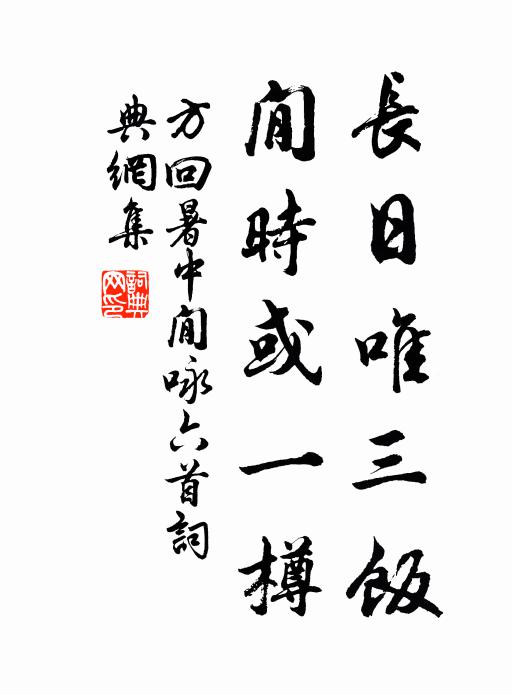 長日唯三飯
閒時或一樽
方回暑中閒咏六首詞
典網集
詞典網印